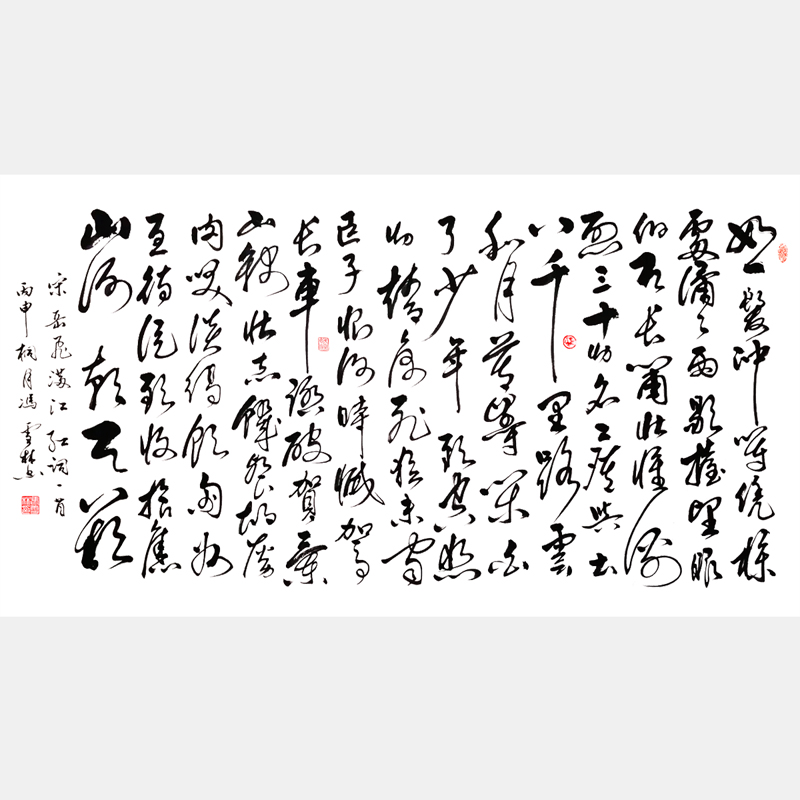 怒髮沖冠憑欄
處瀟瀟雨歇擡望眼
仰天長嘯壯懷激
烈三十功名塵與土
八千里路雲
和月莫等閒白
了少年頭空悲
切靖康恥猶未雪
臣子恨何時滅駕
長車踏破賀蘭
山缺壯志饑餐胡虜
肉笑談渴飲匈奴
血待從頭收拾舊
山河朝天闕
宋岳飛滿江紅詞一首
丙申桐月馮雪林書